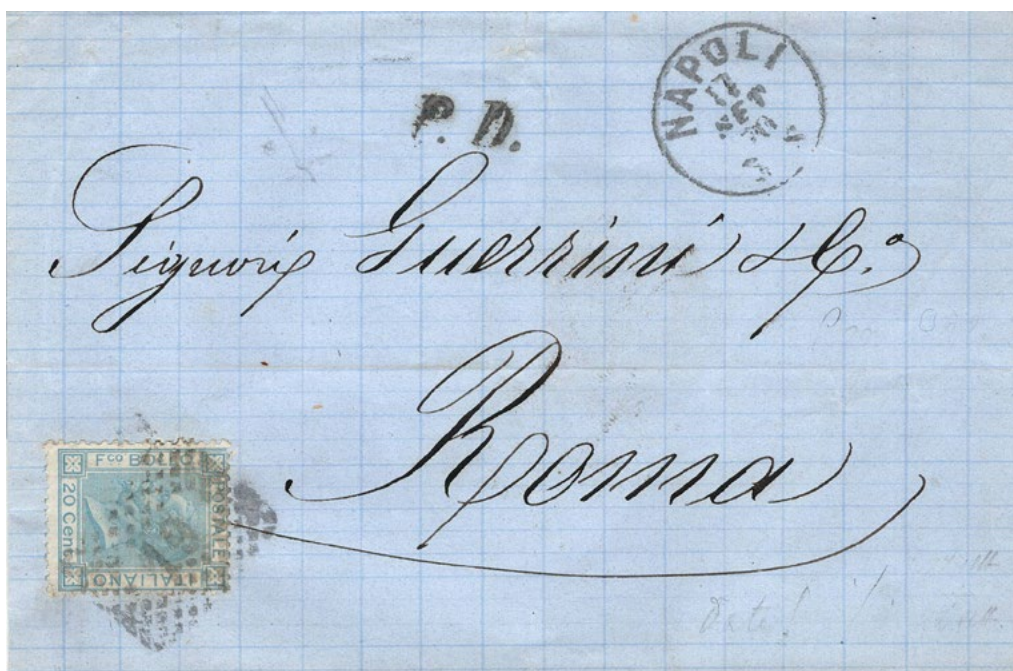 P. D.
NAPOLI
17
SET
70
Signori Guerrini & Cº
Roma
Fco BOLLO
POSTALE
ITALIANO
20 Cent